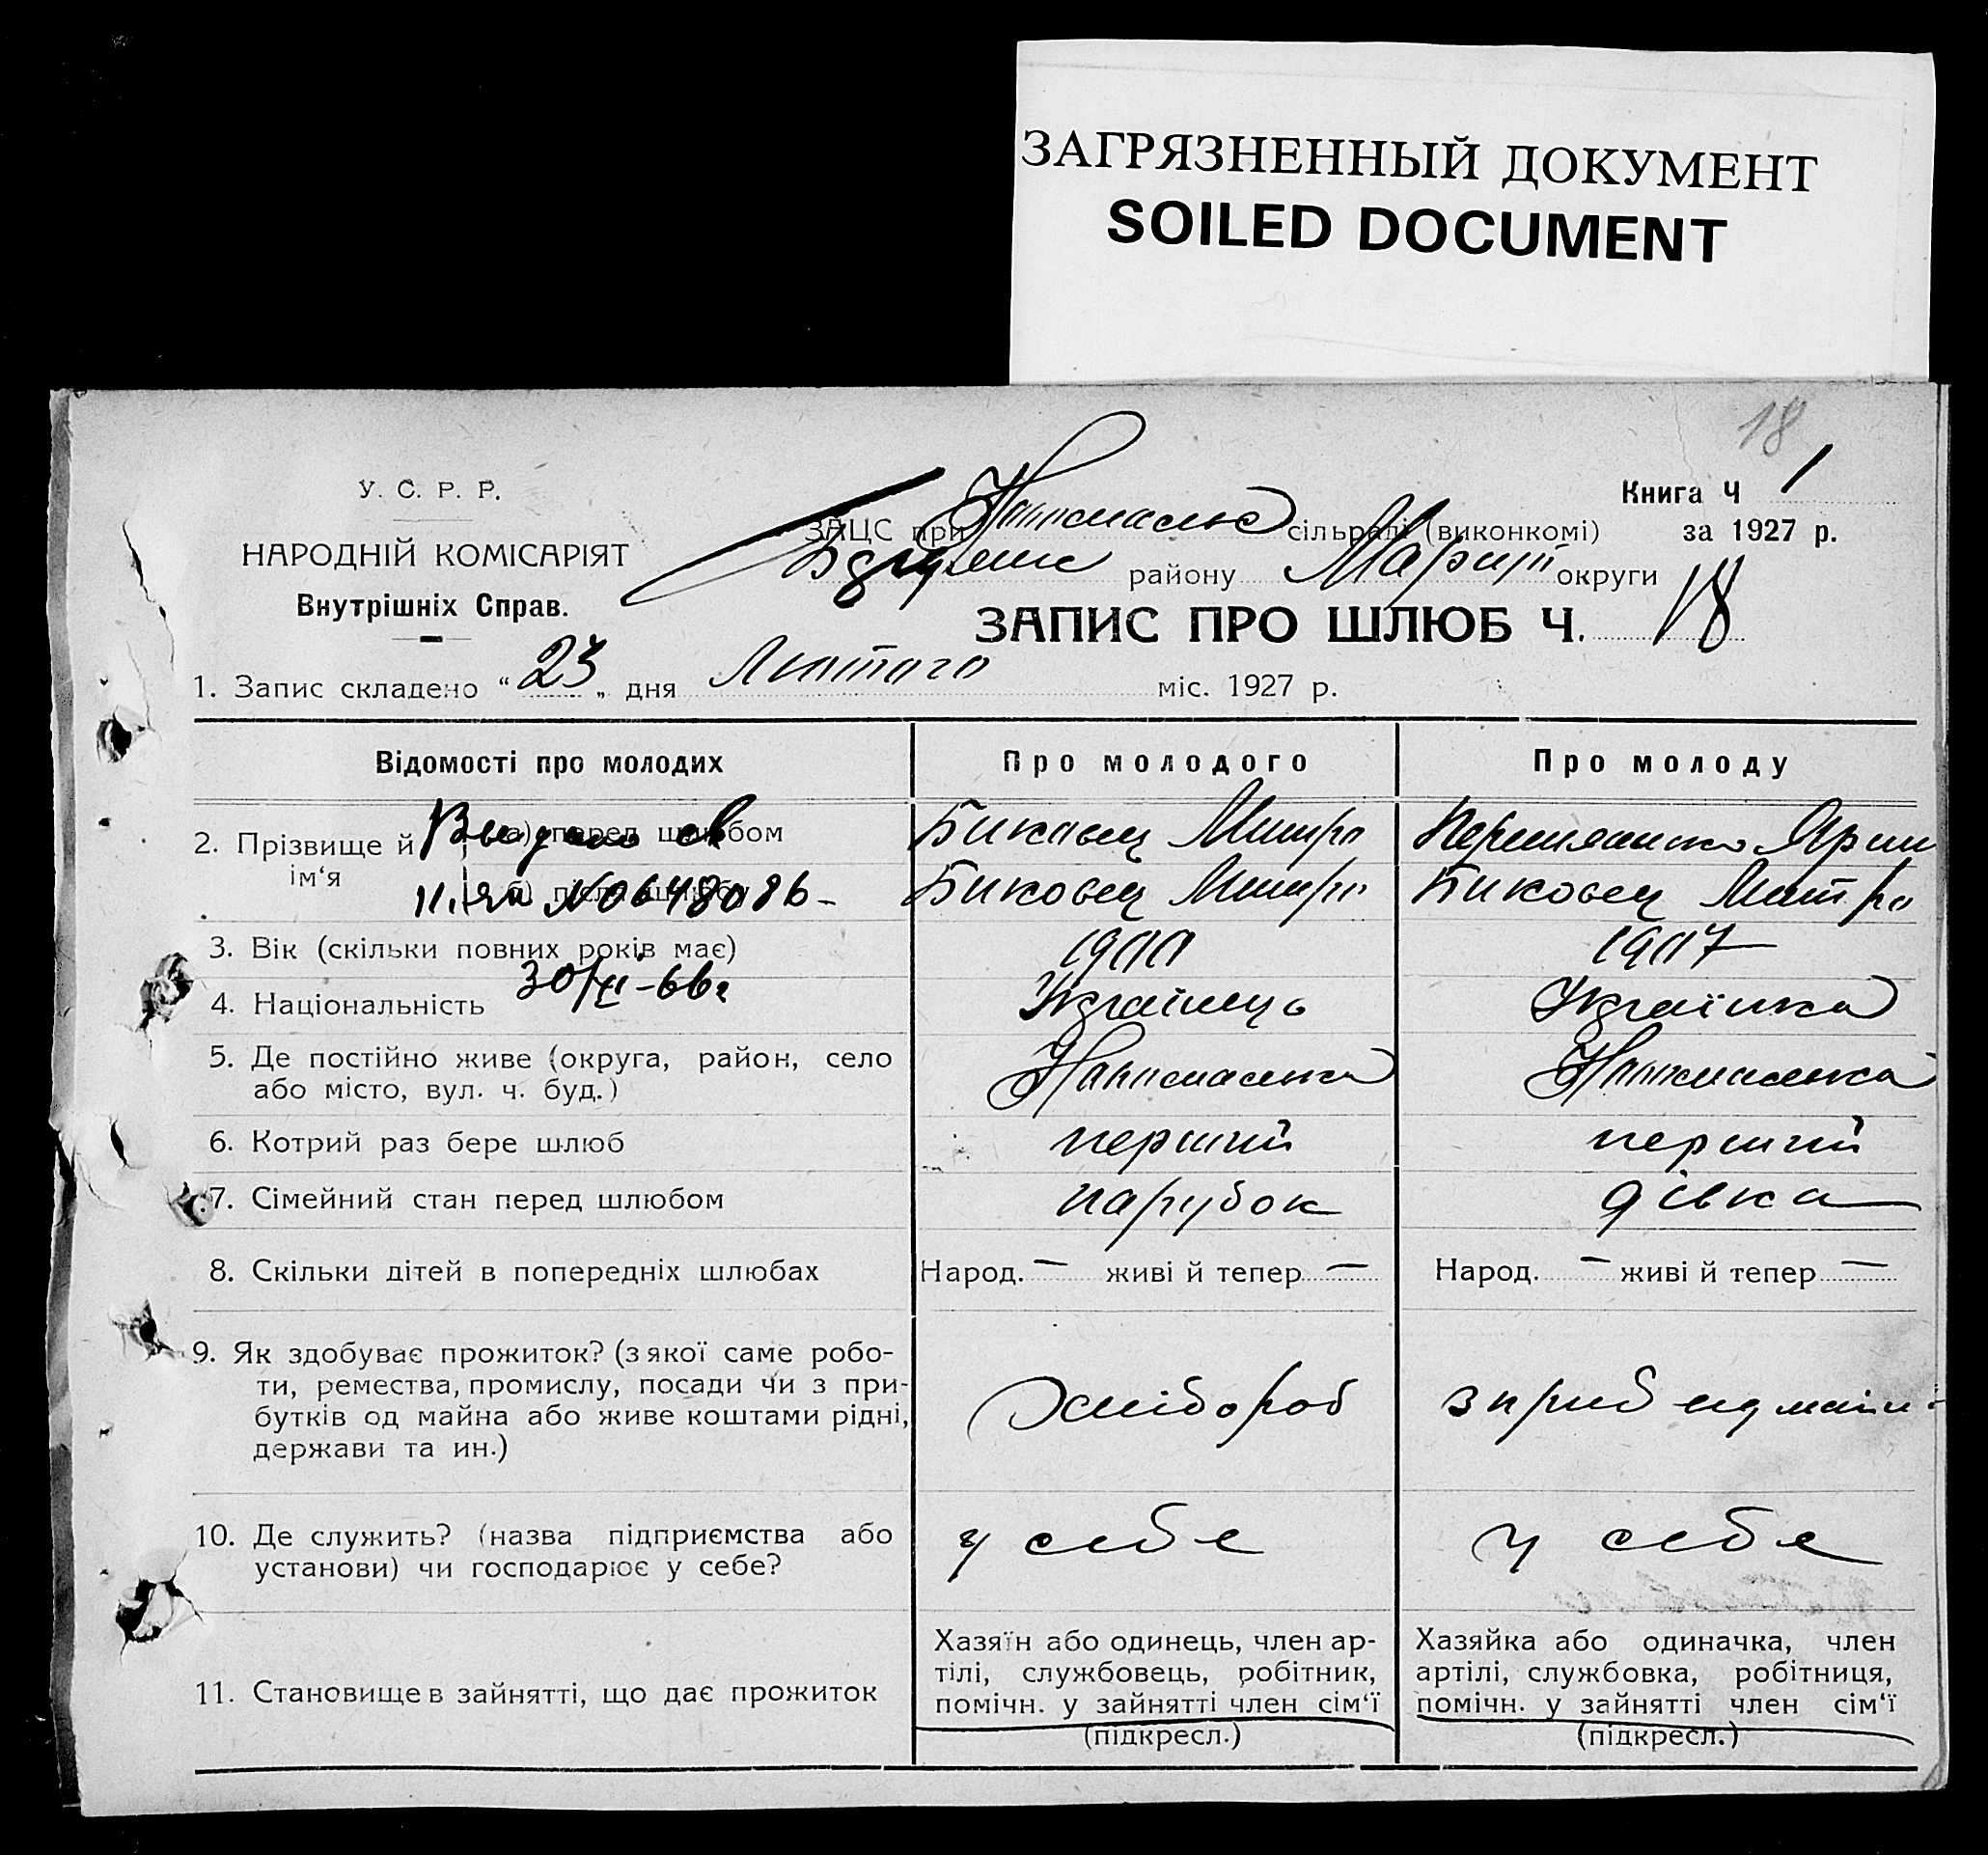 ЗАГРЯЗНЕННЫЙ ДОКУМЕНТ
SOILED DOCUMENT
18
У. С. Р. Р.
Книга Ч 1
ЗАЦС при сільраді (виконкомі) за 1927 р.
НАРОДНІЙ КОМІСАРІЯТ
району Маріуп округи
Внутрішніх Справ.
ЗАПИС ПРО ШЛЮБ Ч. 18
1. Запис складено “ 23 „ дня Лютого міс. 1927 р.
Відомості про молодих Про молодого Про молоду
2. Прізвище й ім‘я а) перед шлюбом Биковец Митро
б) після шлюбу Биковец Митро Биковец
№ 0648086-
3. Вік (скільки повних років має) 1900 1907
30/XI-66г
4. Національність Українець Українка
5. Де постійно живе (округа, район, село
або місто, вул. ч. буд.)
6. Котрий раз бере шлюб перший перший
7. Сімейний стан перед шлюбом парубок дівка
8. Скільки дітей в попередніх шлюбах Народ. — живі й тепер — Народ. — живі й тепер —
9. Як здобуває прожиток? (з якої саме робо-
ти, ремества, промислу, посади чи з при-
бутків од майна або живе коштами рідні,
держави та ин.)
Хлібороб з приб од майн
10. Де служить? (назва підприємства або
установи) чи господарює у себе?
у себе у себе
11. Становище в зайнятті, що дає прожиток
Хазяїн або одинець, член ар-
тілі, службовець, робітник,
помічн. у зайнятті член сім‘ї
(підкресл.)
Хазяйка або одиначка, член
артілі, службовка, робітниця,
помічн. у зайнятті член сім‘ї
(підкресл.)